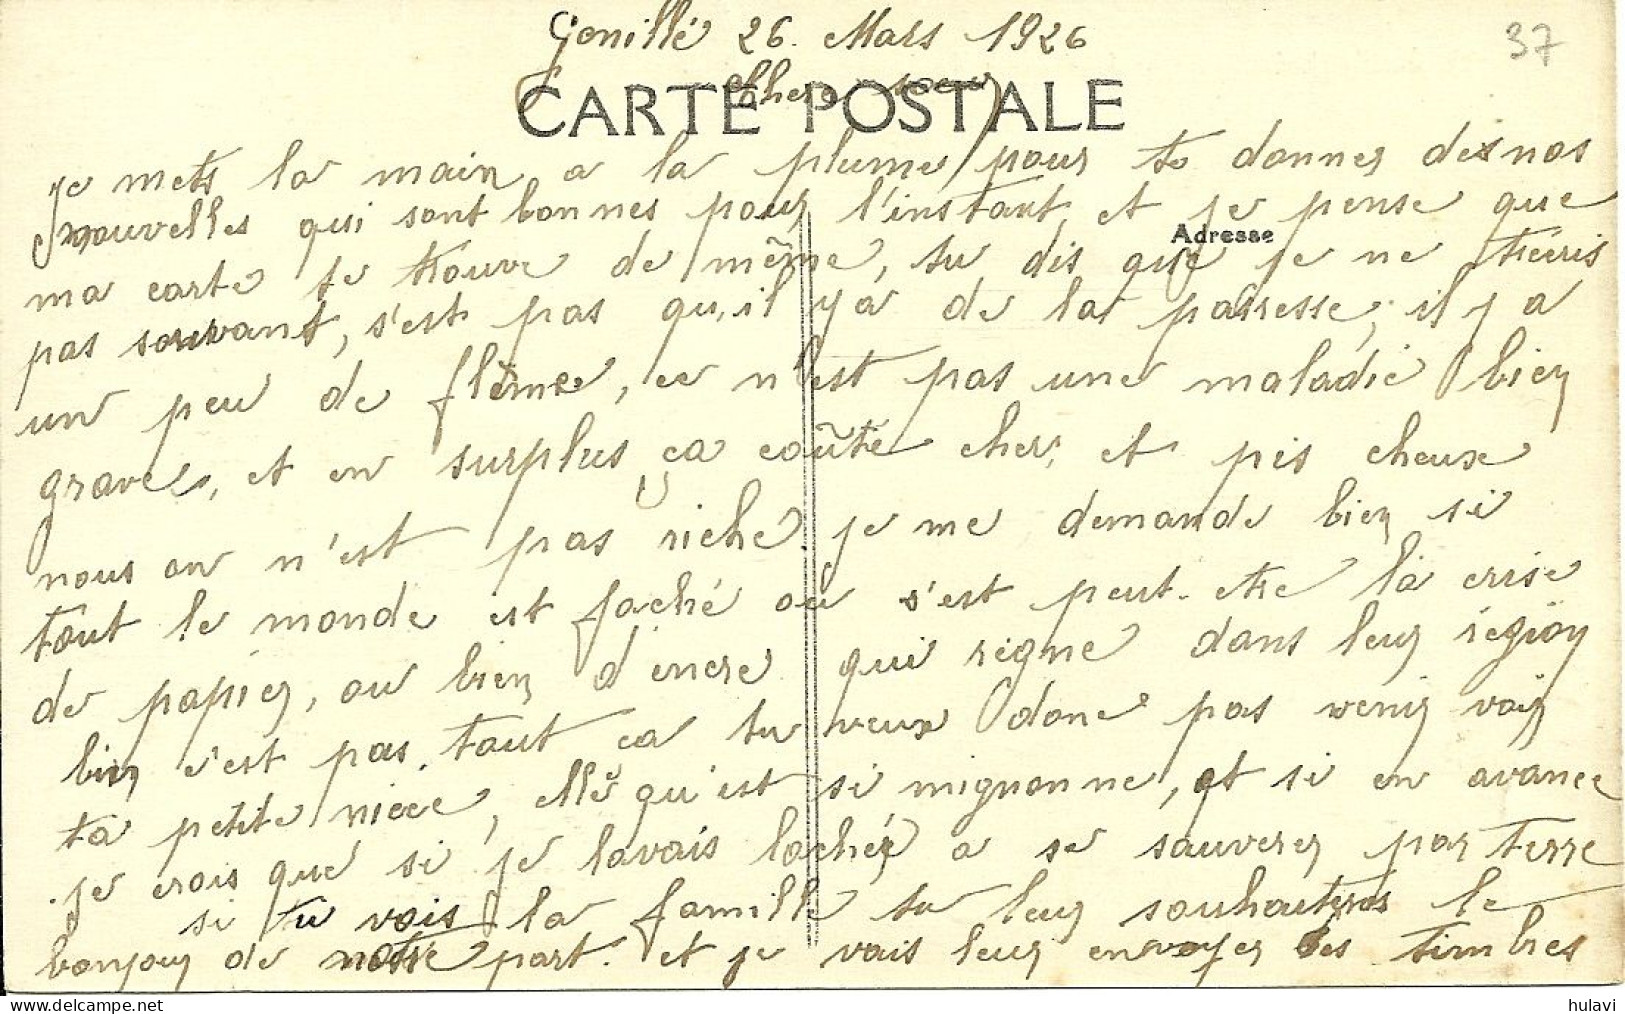 Genillé 26. Mars 1926
37
Chere soeur
CARTE POSTALE
Je mets la main a la plume pour te donner des nos
nouvelles qui sont bonnes pour l'instant, et je pense que
Adresse
ma carte te trouve de même, tu dis que je ne t'écris
pas souvant, s'est pas qu,il y a de la paresse, il y a
un peu de flême, ce n'est pas une maladie bien
grave, et en surplus ça coûte cher, et pis cheux
nous on n'est pas riche. je me demande bien si
tout le monde est faché ou s'est peut-etre la crise
de papier, ou bien d'encre qui règne dans leur région
bien c'est pas tout ca tu veux donc pas venir voir
ta petite niece, elle qu'est si mignonne, et si en avance
je crois que si je lavais lacher a se sauverer par terre
si tu vois la famille tu leur souhauteras le
bonjour de notre part. et je vais leur envoyer des timbres
hulavi